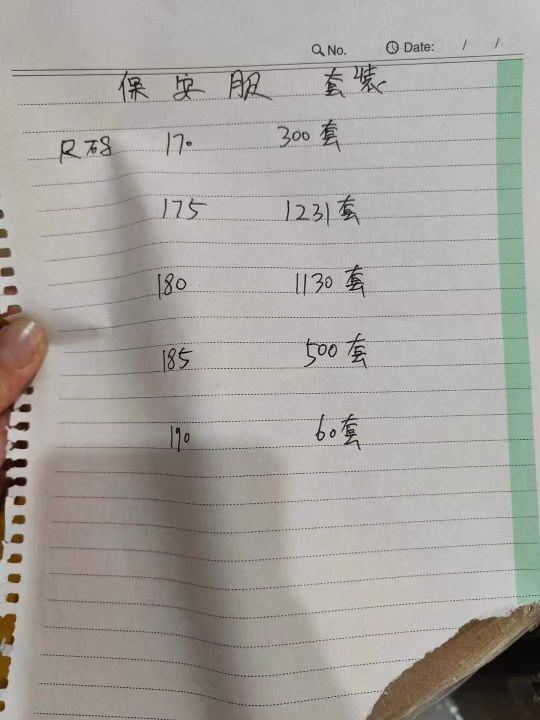 No. Date: / /
保安服 套装
尺码 170 300套
175 1231套
180 1130套
185 500套
190 60套